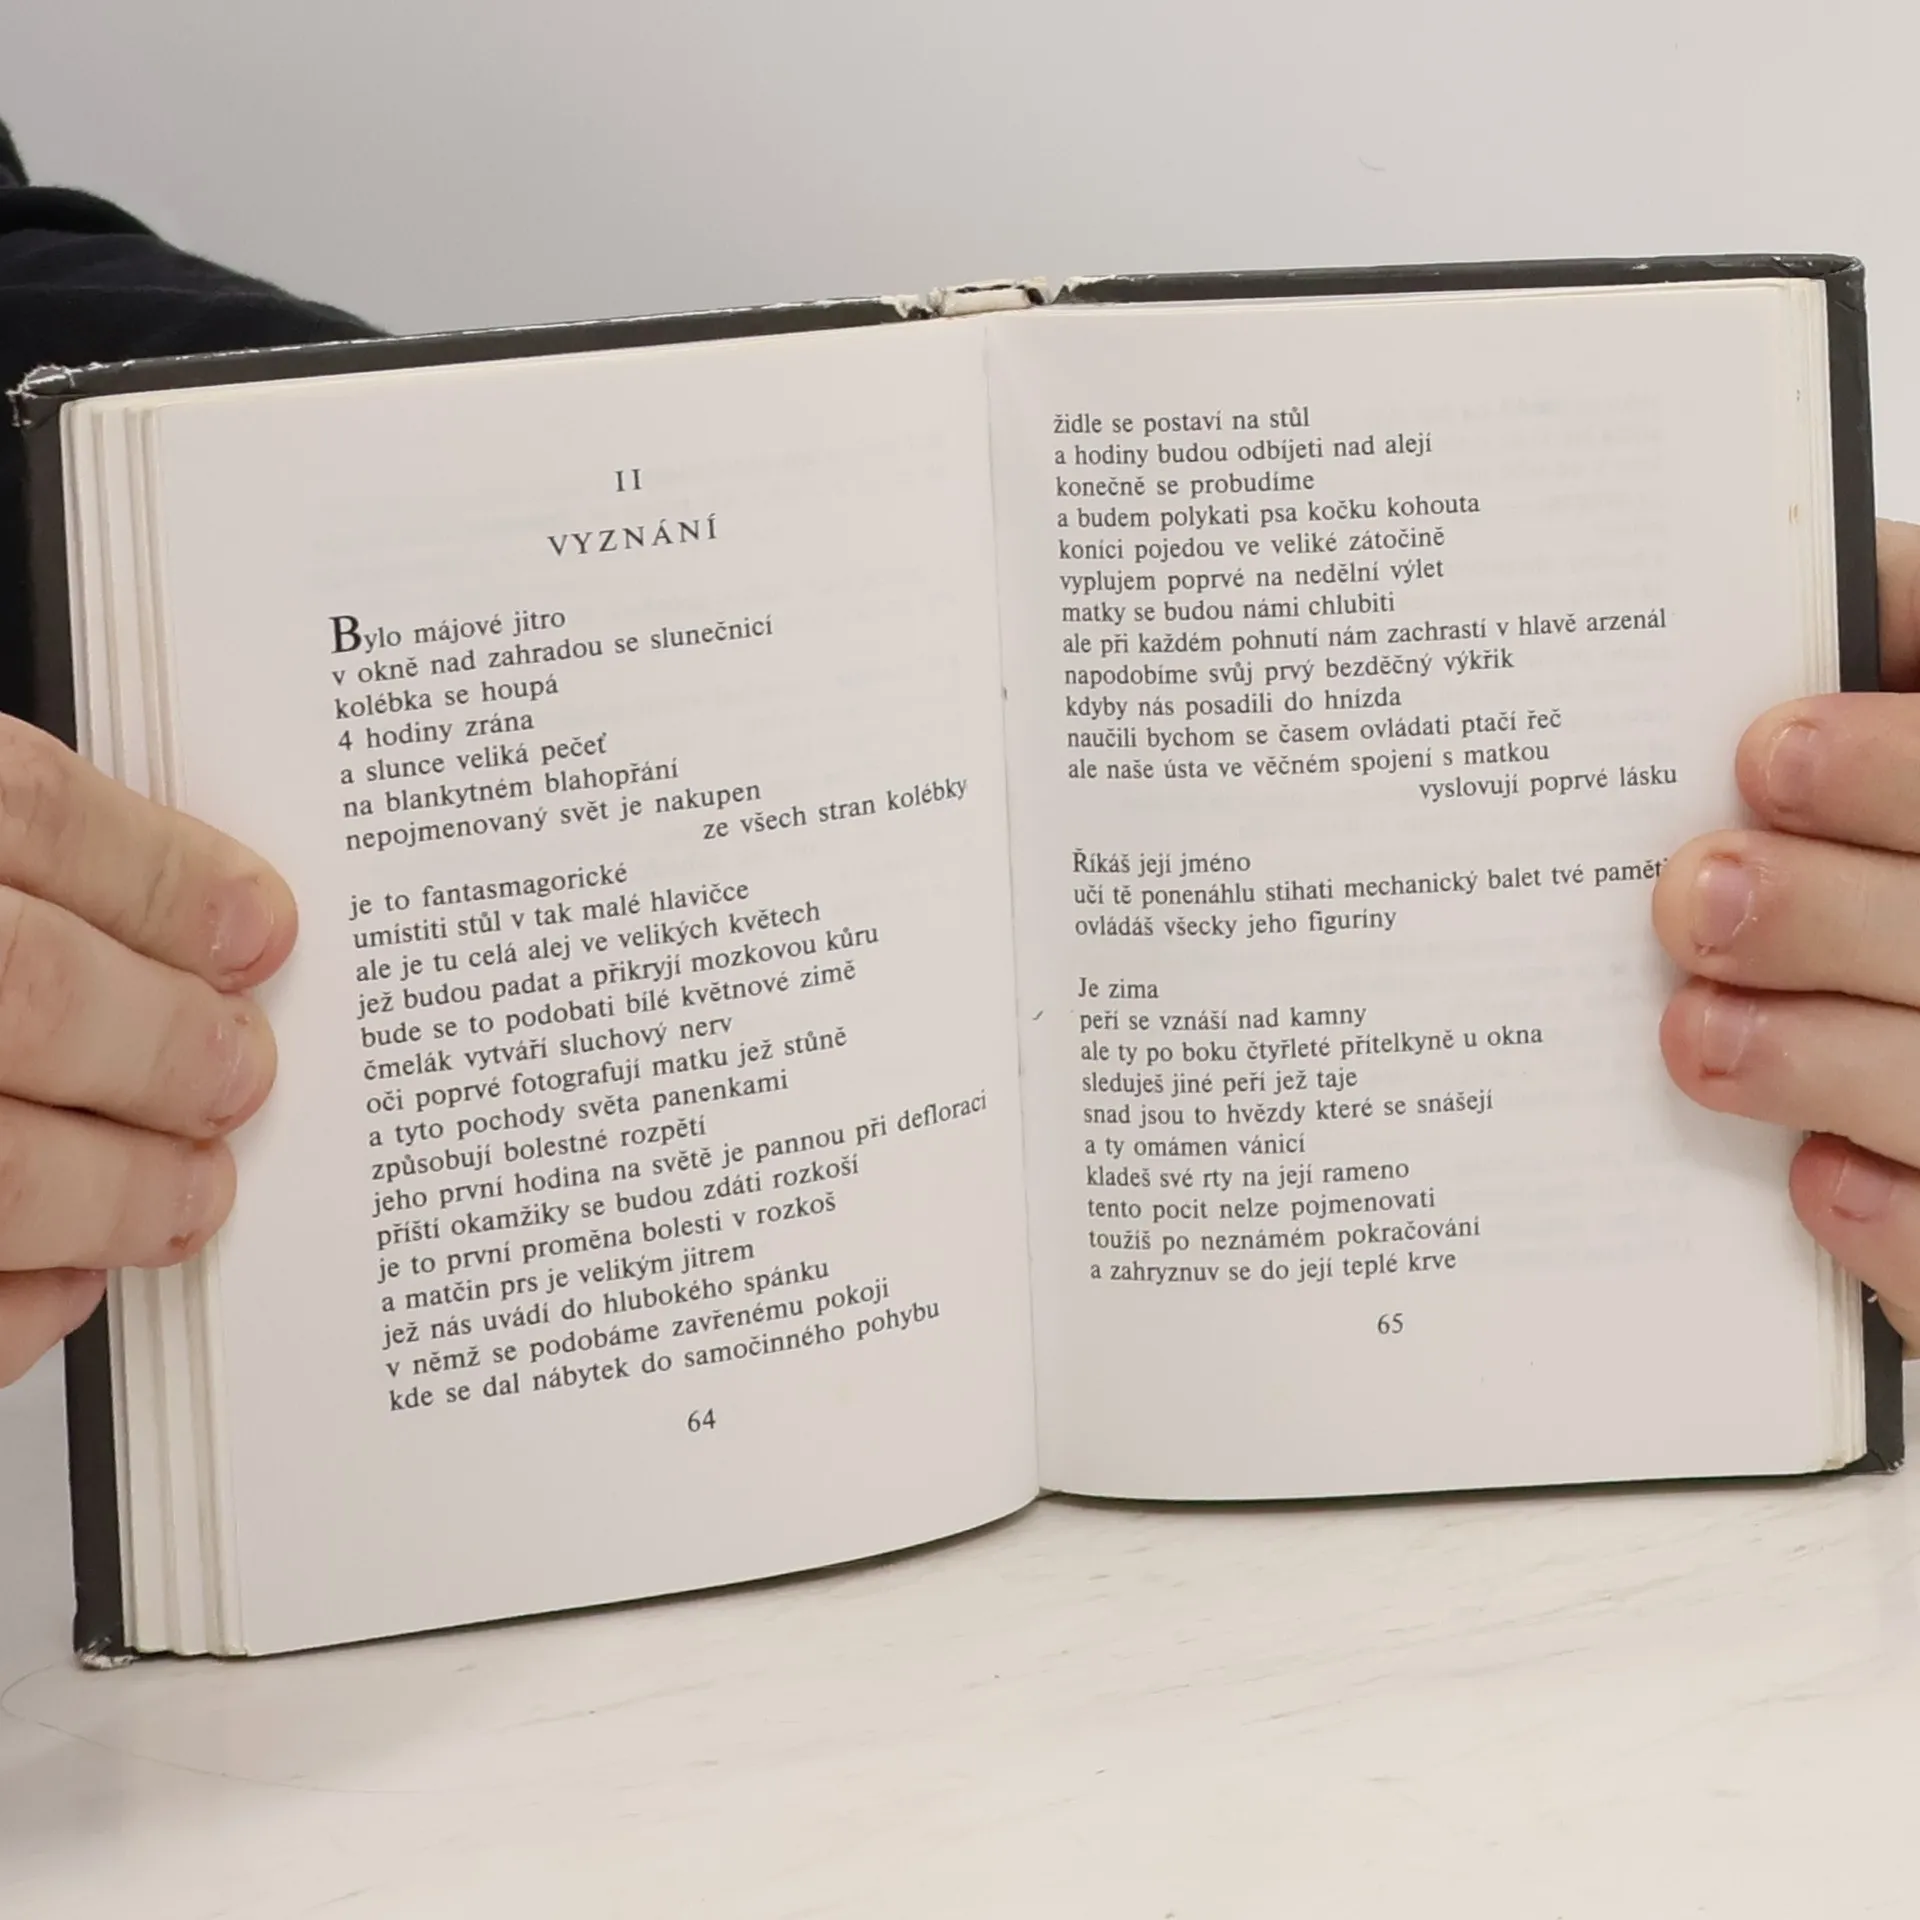 II
VYZNÁNÍ
Bylo májové jitro
v okně nad zahradou se slunečnicí
kolébka se houpá
4 hodiny zrána
a slunce veliká pečeť
na blankytném blahopřání
nepojmenovaný svět je nakupen
ze všech stran kolébky
je to fantasmagorické
umístiti stůl v tak malé hlavičce
ale je tu celá alej ve velikých květech
jež budou padat a přikryjí mozkovou kůru
bude se to podobati bílé květnové zimě
čmelák vytváří sluchový nerv
oči poprvé fotografují matku jež stůně
a tyto pochody světa panenkami
způsobují bolestné rozpětí
jeho první hodina na světě je pannou při defloraci
příští okamžiky se budou zdáti rozkoší
je to první proměna bolesti v rozkoš
a matčin prs je velikým jitrem
jež nás uvádí do hlubokého spánku
v němž se podobáme zavřenému pokoji
kde se dal nábytek do samočinného pohybu
64
židle se postaví na stůl
a hodiny budou odbíjeti nad alejí
konečně se probudíme
a budem polykati psa kočku kohouta
koníci pojedou ve veliké zátočině
vyplujem poprvé na nedělní výlet
matky se budou námi chlubiti
ale při každém pohnutí nám zachrastí v hlavě arzenál
napodobíme svůj prvý bezděčný výkřik
kdyby nás posadili do hnízda
naučili bychom se časem ovládati ptačí řeč
ale naše ústa ve věčném spojení s matkou
vyslovují poprvé lásku
Říkáš její jméno
učí tě ponenáhlu stihati mechanický balet tvé paměti
ovládáš všecky jeho figuríny
Je zima
peří se vznáší nad kamny
ale ty po boku čtyřleté přítelkyně u okna
sleduješ jiné peří jež taje
snad jsou to hvězdy které se snášejí
a ty omámen vánicí
kladeš své rty na její rameno
tento pocit nelze pojmenovati
toužíš po neznámém pokračování
a zahryznuv se do její teplé krve
65